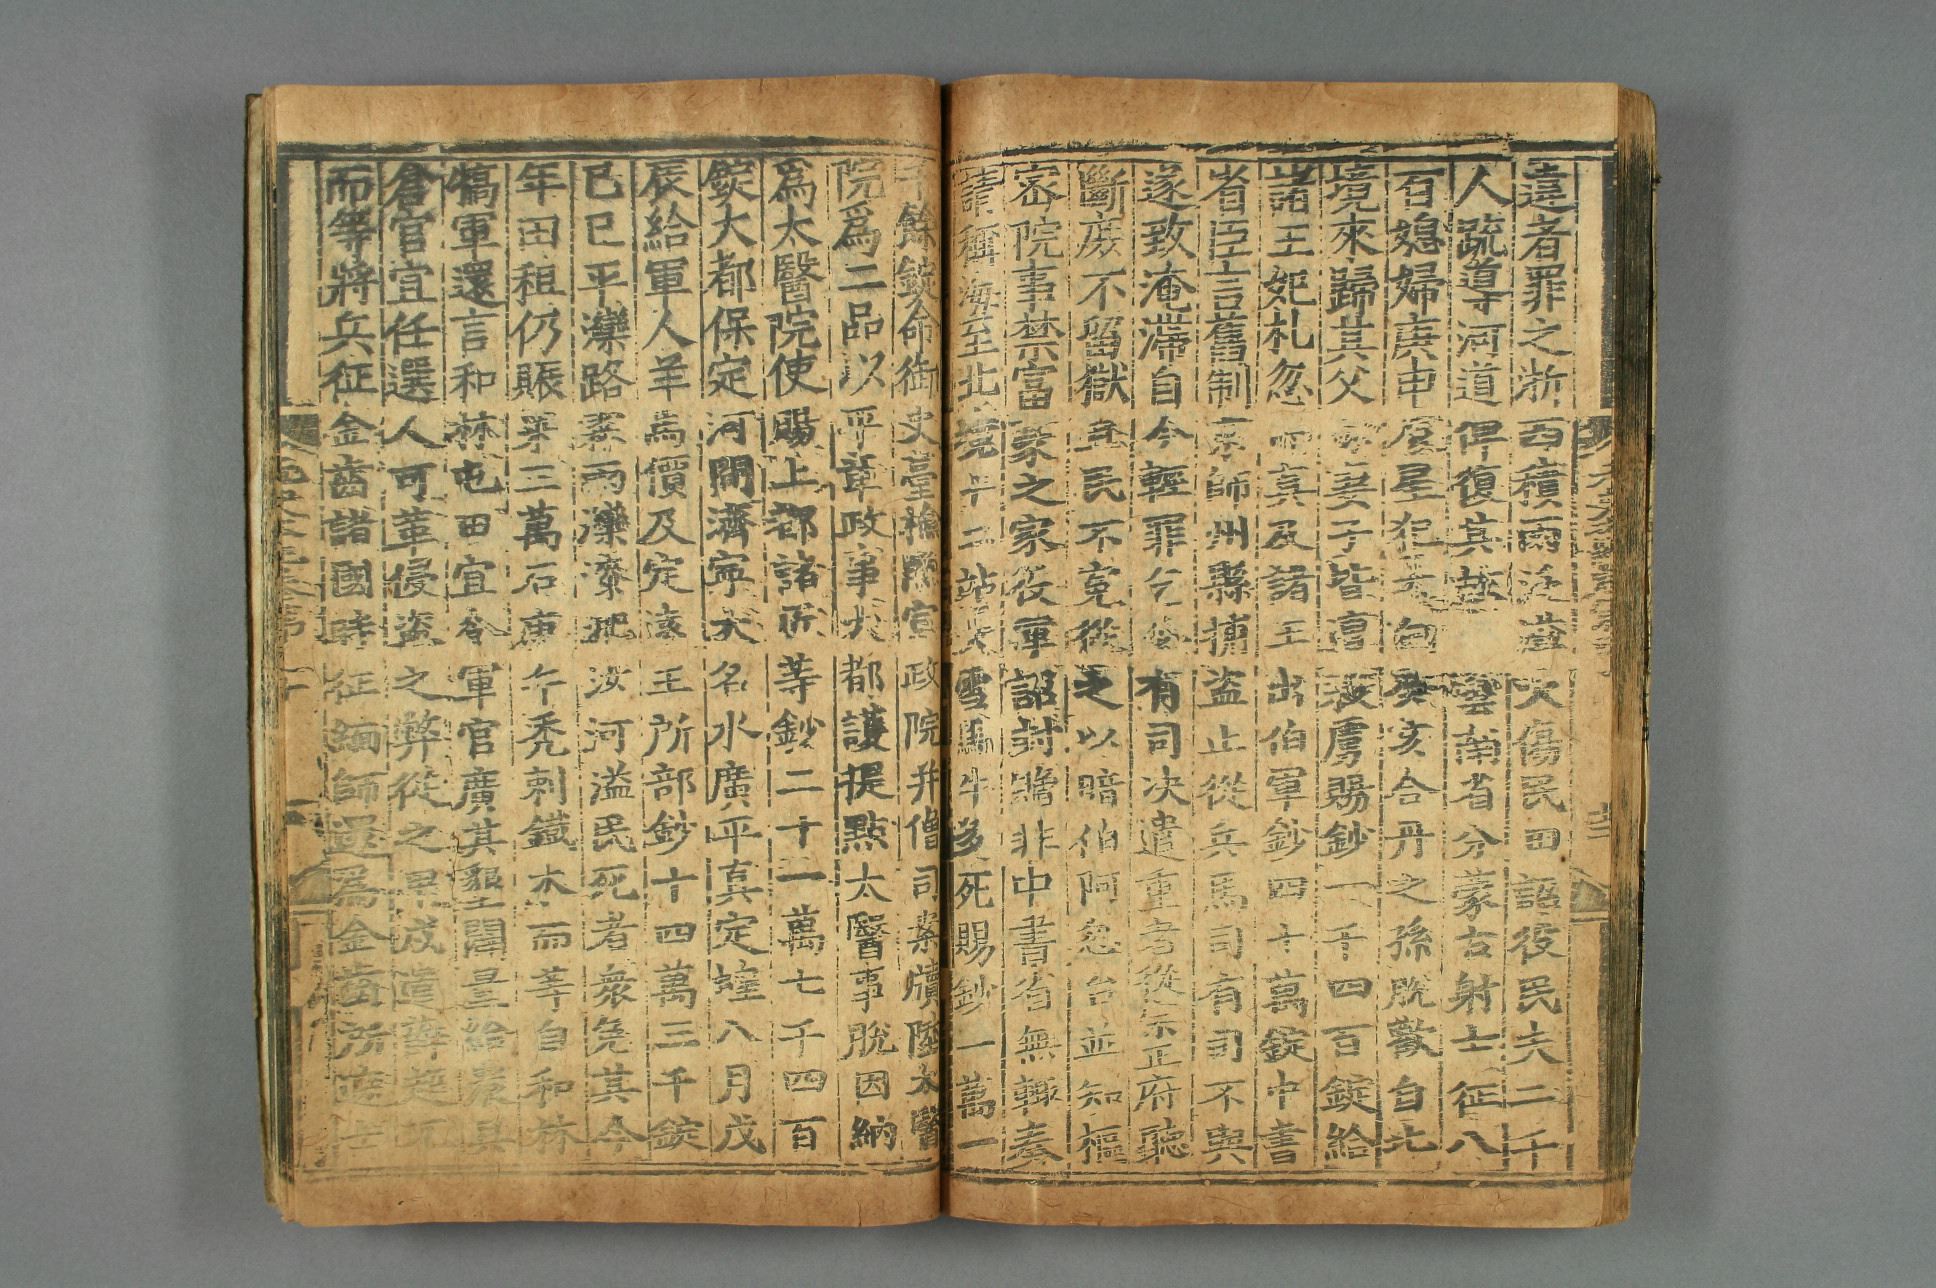 違者罪之浙西積雨泛溢大傷民田詔役民夫二千
人疏導河道俾復其故雲南省分蒙古射士征八
百媳婦庚申辰星犯太白癸亥合丹之孫脫歡自北
境來歸其父母妻子皆遭殺虜賜鈔一千四百錠給
諸王妃札忽而真及諸王出伯軍鈔四十萬錠中書
省臣言舊制京師州縣捕盜止從兵馬司有司不與
遂致淹滯自今輕罪乞令有司決遣重者從宗正府聽
斷庶不留獄且民不冤從之以暗伯阿忽台並知樞
密院事禁富豪之家役軍詔封贈非中書省無輒奏
請稱海至北境十二站大雪馬牛多死賜鈔一萬一
千餘錠命御史臺檢照宣政院并僧司案牘陞太醫
院爲二品以平章政事大都護提點太醫事脫因納
爲太醫院使賜上都諸匠等鈔二十二萬七千四百
錠大都保定河間濟寧大名水廣平真定蝗八月戊
辰給軍人羊馬價及定遠王所部鈔十四萬三千錠
己巳平灤路霖雨灤漆淝汝河溢民死者衆免其今
年田租仍賑粟三萬石庚午禿剌鐵木而等自和林
犒軍還言和林屯田宜令軍官廣其墾闢量給農具
倉官宜任選人可革侵盜之弊從之甲戌遣薛超兀
而等將兵征金齒諸國時征緬師還爲金齒所遮士